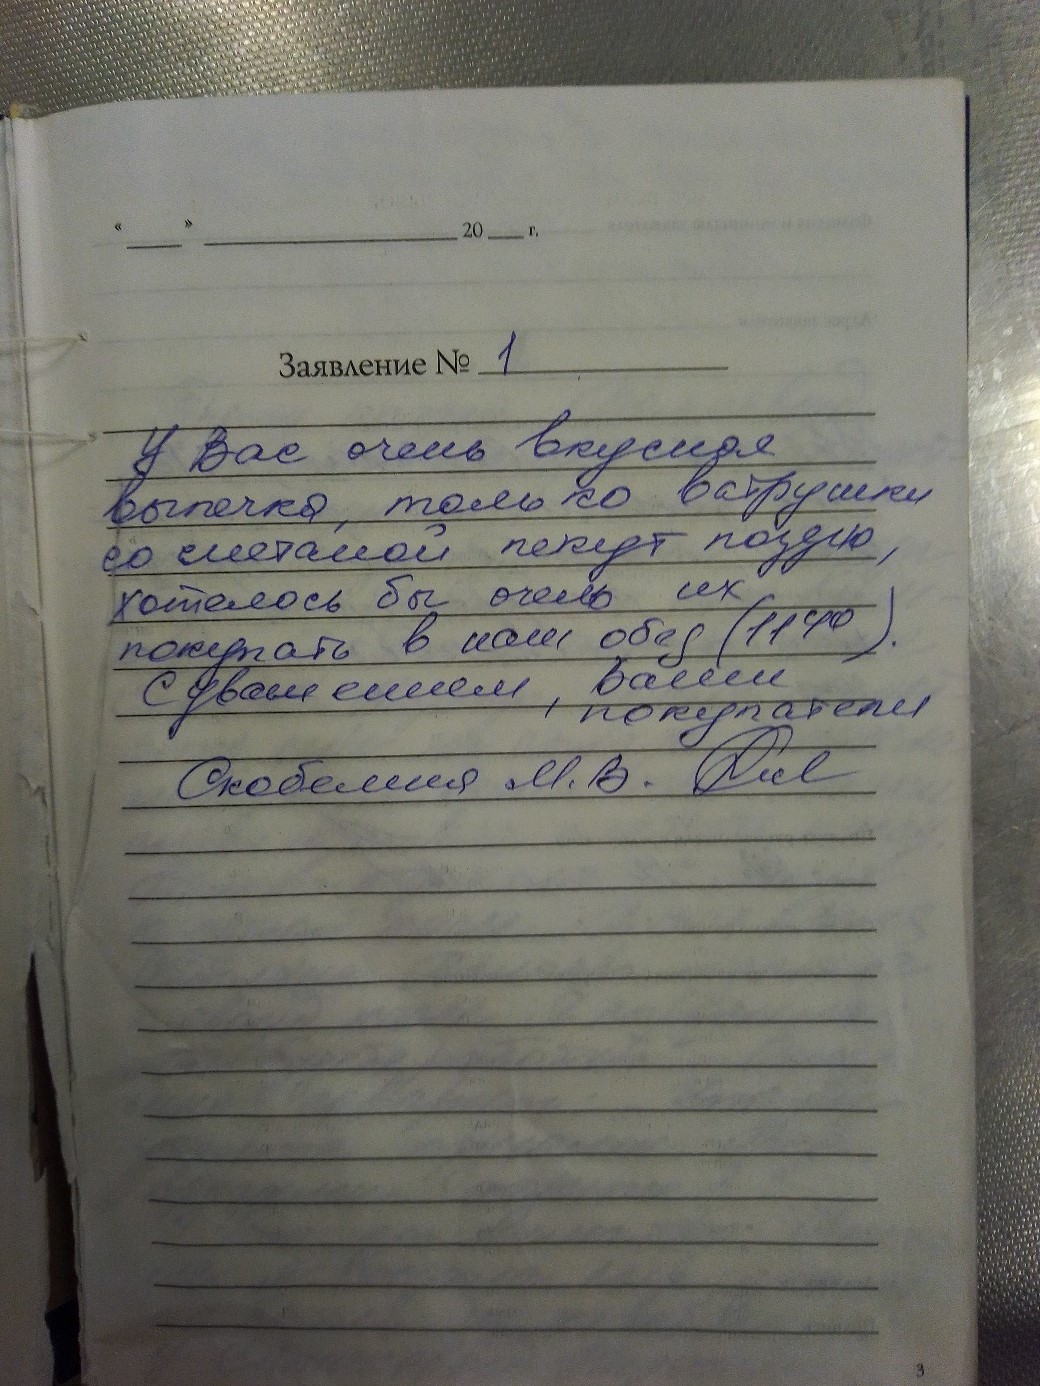 « ___ » ______________ 20 ___ г.
Заявление № 1
У Вас очень вкусная
выпечка, только ватрушки
со сметаной пекут поздно,
хотелось бы очень их
покупать в наш обед (11 40).
С уважением, Ваши
покупатели
Скобелина М.В.
3